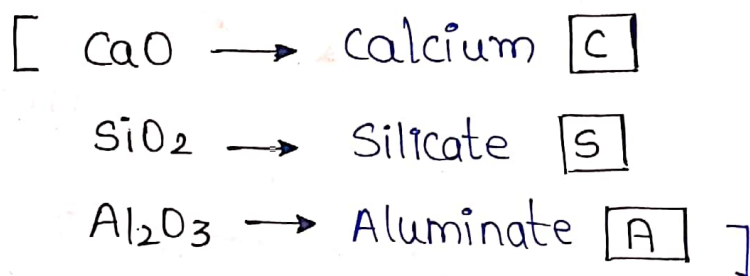 [ CaO → Calcium C
SiO2 → Silicate S
Al2O3 → Aluminate A ]